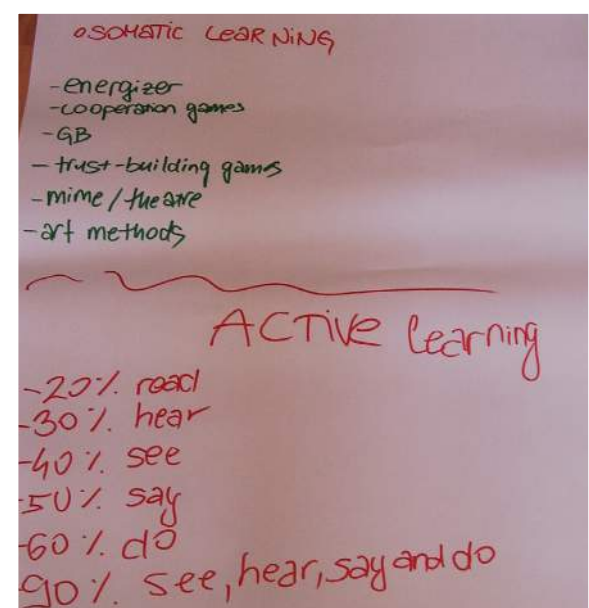 oSOMATIC LEARNING
-energizer
-cooperation games
-GB
- trust-building games
-mime / theatre
-art methods
ACTIVE learning
-20% read
-30% hear
-40% see
-50% say
-60% do
90% see, hear, say and do